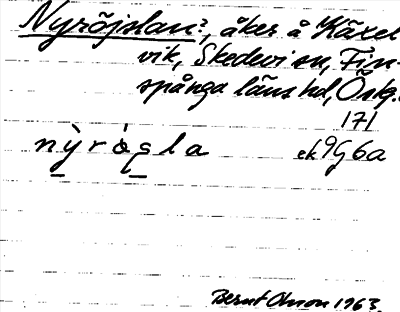 Nyröjslan?, åker å Käxel
vik, Skedevi sn, Fin-
spånga läns hd, Östg.
171
nỳrò̢s̱la ek 9G6a
Bernt Olsson 1963.